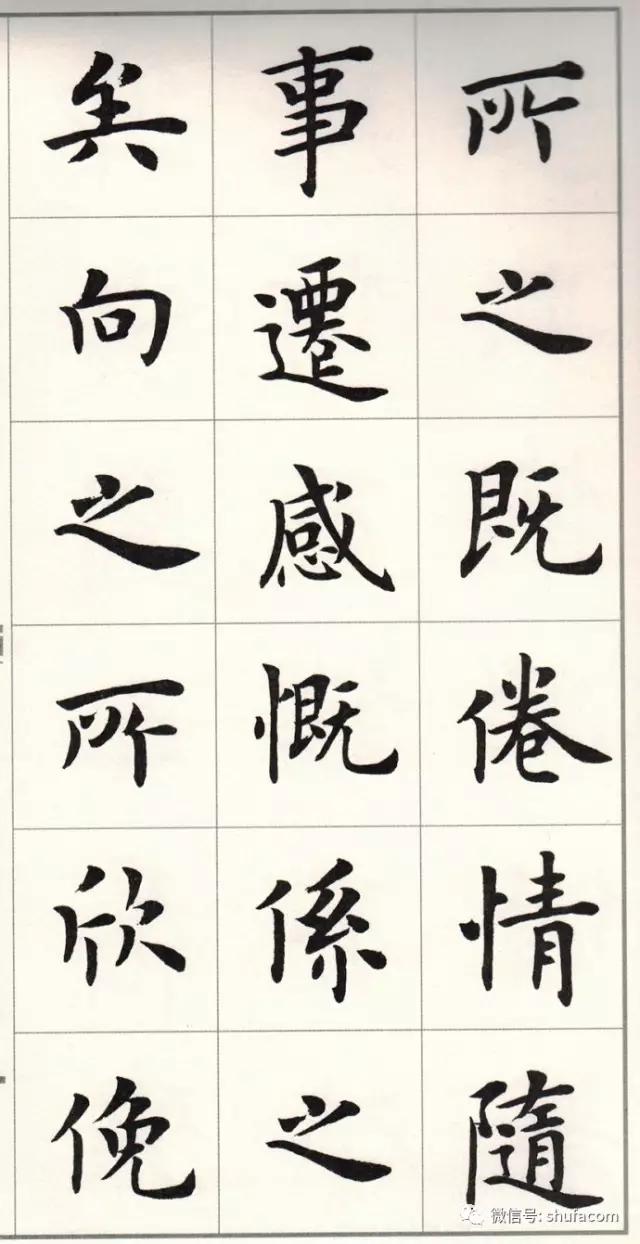 所之既倦情隨
事遷感慨係之
矣向之所欣俛
微信号: shufacom